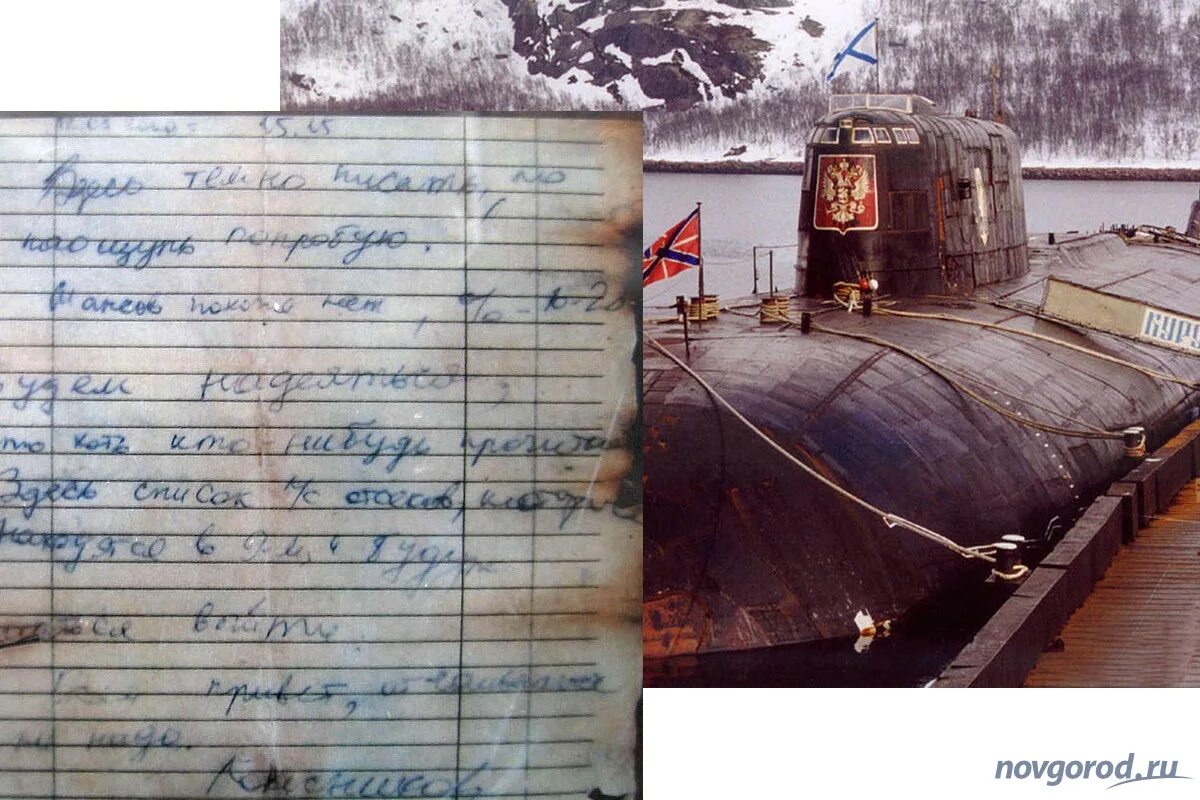 15.15
Здесь темно писать, но
наощупь попробую.
Шансов похоже нет, % - 10-20
будем надеяться,
что хоть кто-нибудь прочитает
Здесь список л/с отсеков, которые
находятся в 9-м и будут
выйти.
привет, отчаиваться
не надо.
Колесников
КУРС
novgorod.ru